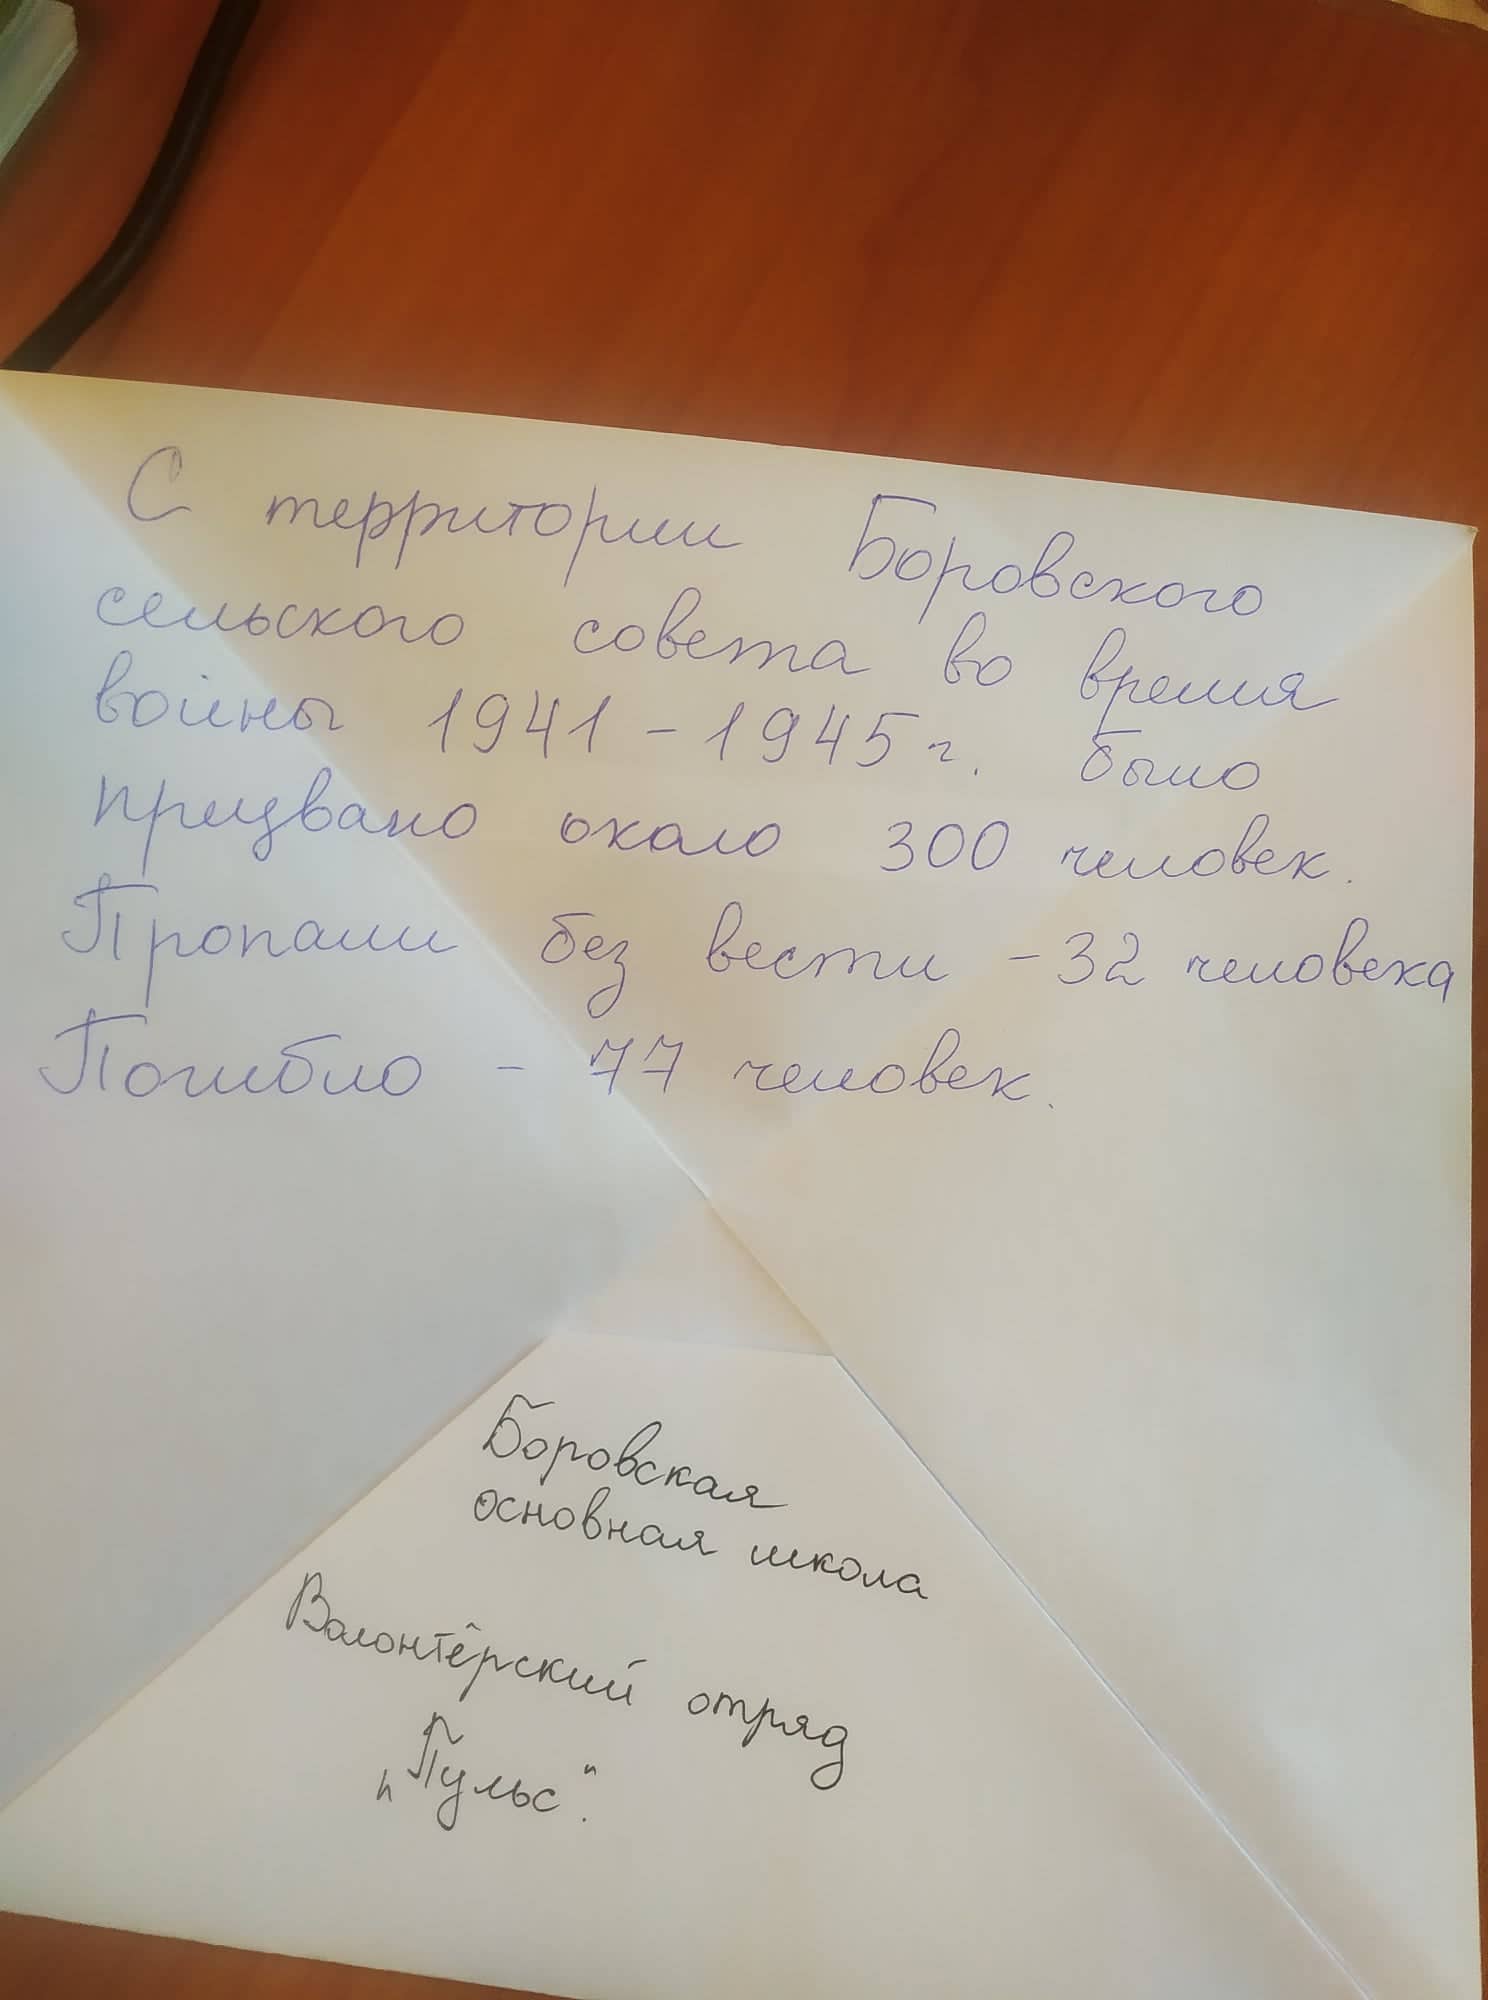 С территории Боровского
сельского совета во время
войны 1941 - 1945 г. было
призвано около 300 человек.
Пропали без вести - 32 человека
Погибло - 77 человек.
Боровская
основная школа
Волонтёрский отряд
„Пульс".